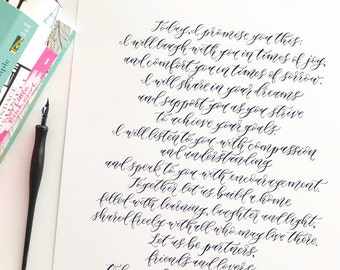 Today, I promise you this:
I will laugh with you in times of joy,
and comfort you in times of sorrow.
I will share in your dreams
and support you as you strive
to achieve your goals.
I will listen to you with compassion
and understanding
and speak to you with encouragement.
Together let us build a home
filled with learning, laughter and light,
shared freely with all who may live there.
Let us be partners,
friends and lovers